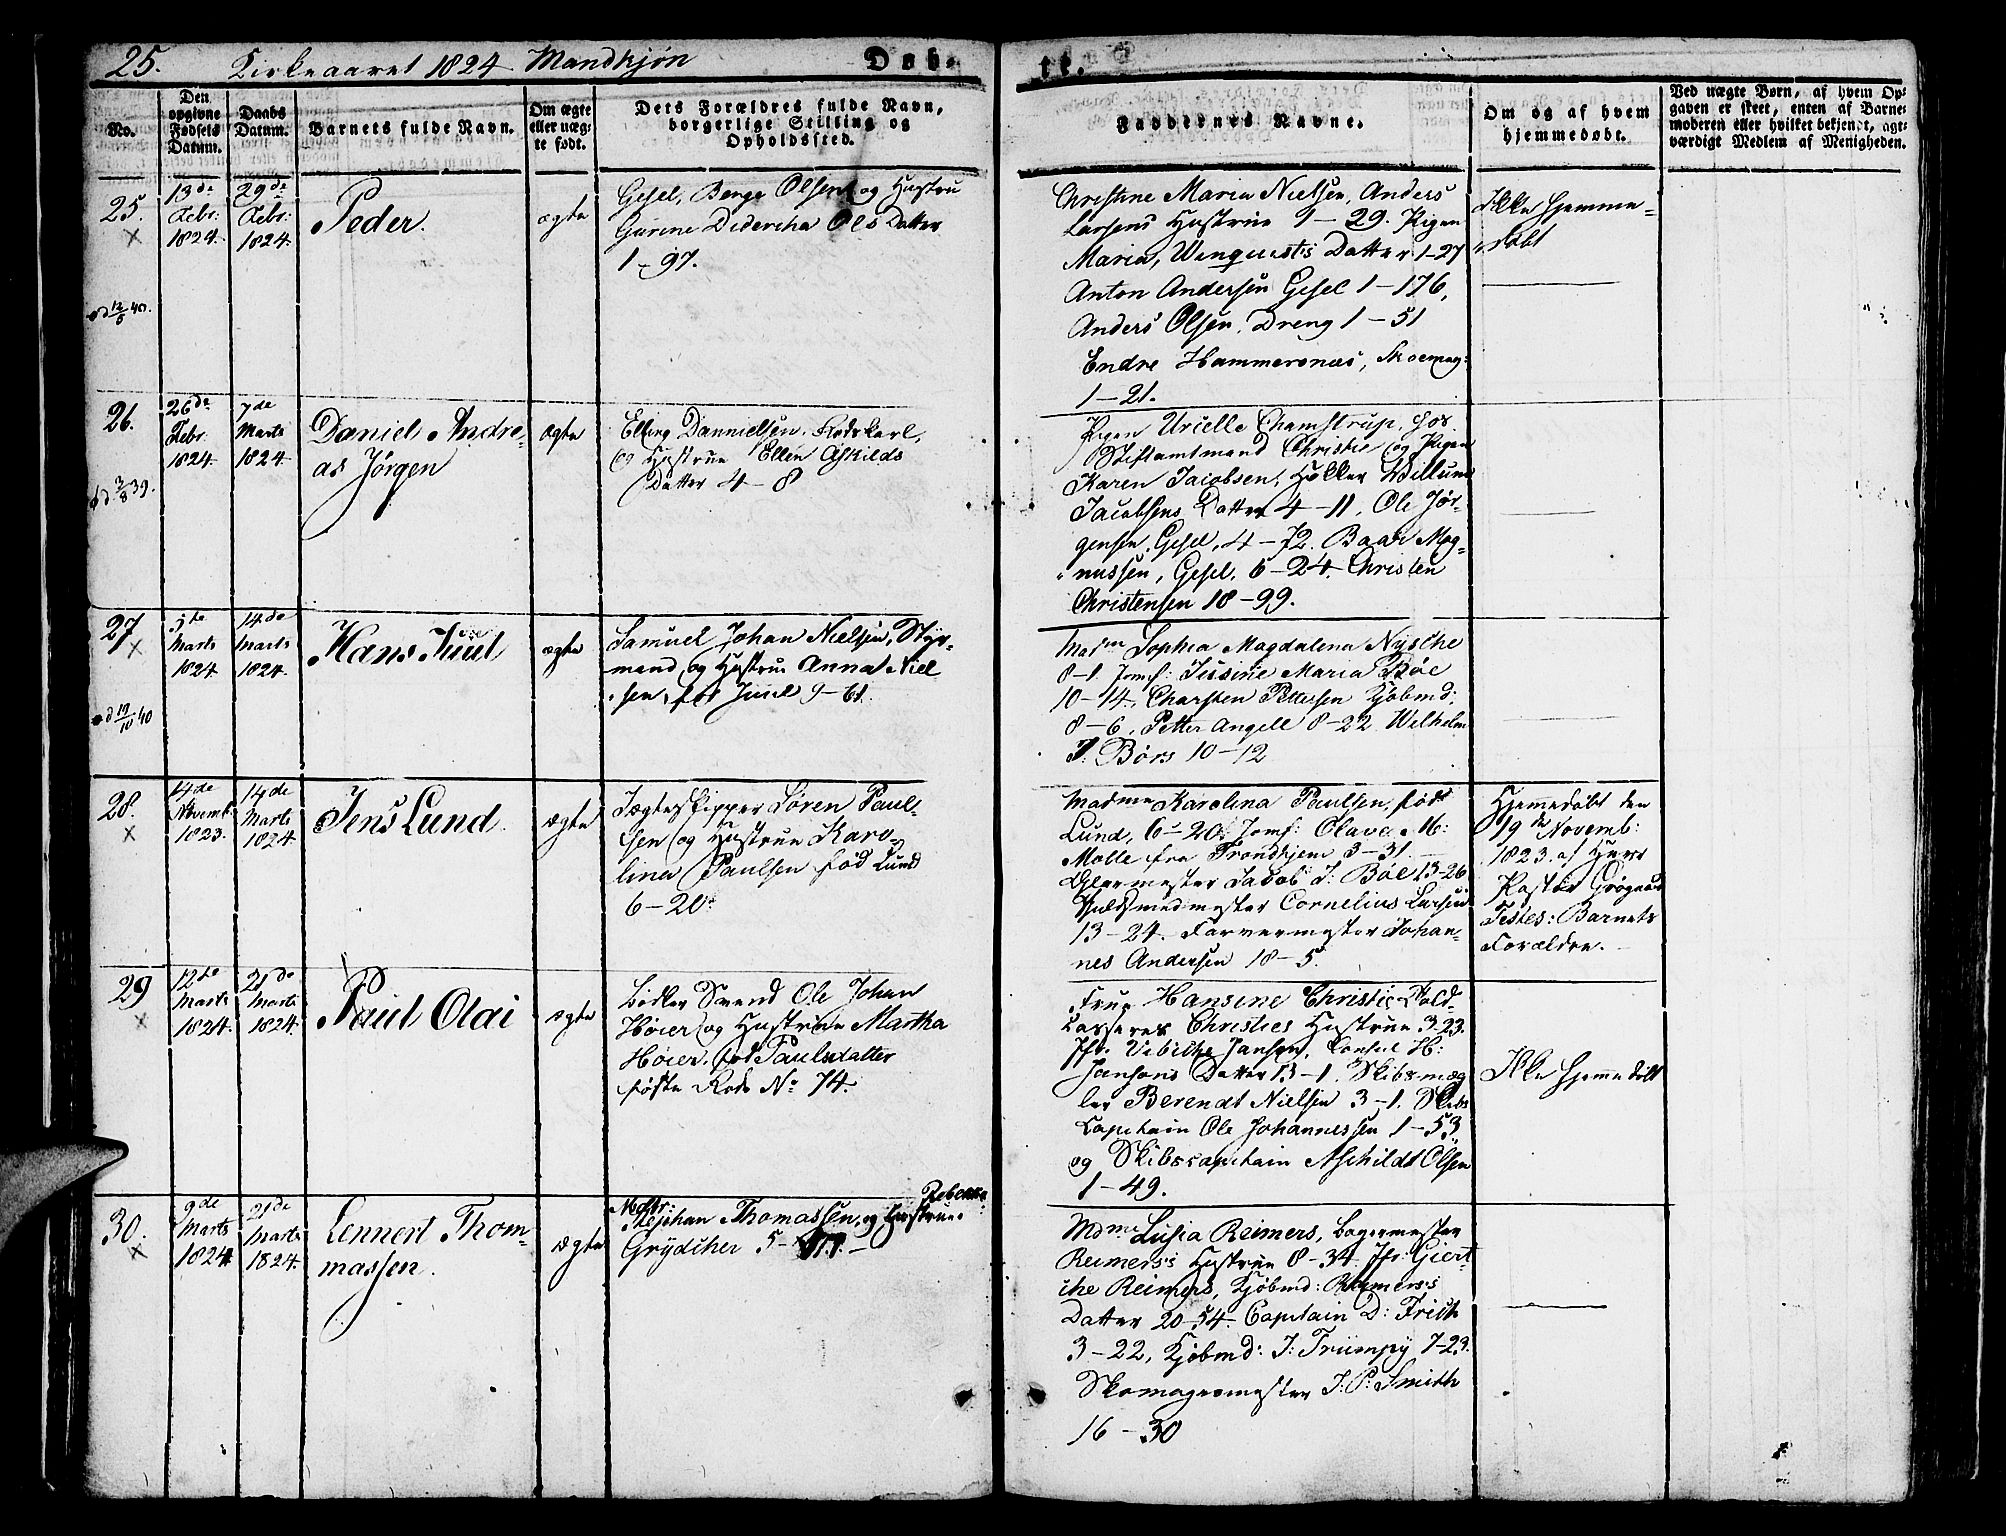 25. Kirkeaaret 1824 Mandkjøn Døb-
te.
No.
Den opgivne Fødsels Datum.
Daabs Datum.
Barnets fulde Navn.
Om ægte eller uæg-
te født.
Dets Forældres fulde Navn,
borgerlige Stilling og
Opholdssted.
Faddernes Navne.
Om og af hvem
hjemmedøbt.
Ved uægte Børn, af hvem Op-
gaven er skeet, enten af Barne-
moderen eller hvilket bekjendt, agt-
værdigt Medlem af Menigheden.
25.
13de
Febr:
1824.
29de
Febr:
1824.
Peder.
ægte
Gesel, Berge Olsen og Hustru
Gurine Didericha Ols Datter
1-97.
Christine Maria Nielsen, Anders
Larsens Hustrue 1-29. Pigen
Maria, Wenquests Datter 1-27
Anton Andersen Gesel 1-176,
Anders Olsen, Dreng 1-51
Endre Hammersnæs, Skoemag:
1-21.
Ikke Hjemme-
døbt
26.
26de
Febr:
1824.
7de
Marts
1824.
Daniel Andre-
as Jørgen
ægte
Elling Dannielsen, Rodskarl,
og Hustrue Ellen Askilds
Datter 4-8
Pigen Urielle Chamstrup, hos
Stiftamtmand Christie og Pigen
Karen Jacobsen, Høkker Willum
Jacobsens Datter 4-11, Ole Jør-
gensen, Gesel, 4-72. Baar Mag-
nussen, Gesel, 6-24. Christen
Christensen 18-99.
27
5te
Marts
1824.
14de
Marts
1824.
Hans Juul
ægte
Samuel Johan Nielsen, Styr-
mand og Hustrue Anna Niel
sen, fød Juul 9-61.
Madm Sophia Magdalena Nÿsche
8-1. Jomf: Jissine Maria Bøe
10-14, Charsten Pettersen Kjøbmd:
8-6, Petter Angell 8-22 Wilhelm
J: Børs 10-12
28.
14de
Novemb:
1823.
14de
Marts
1824.
Jens Lund.
ægte
Jægteskipper Søren Paul-
sen og Hustrue Karo-
lina Paulsen fød Lund
6-20.
Madme Karolina Paulsen, født
Lund, 6-20. Jomf: Olava M:
Molle fra Trondhjem 3-31.
Glarmester Jacob J: Bøe 13-26
Guldsmedmester Cornelius Larsen
13-24. Farvermester Johan-
nes Andersen 18-5.
Hjemmedøbt den
19de Novemb:
1823. af Herr
Pastor Grøgaard
Testes: Barnets
Forældre.
29
12te
Marts
1824.
21de
Marts
1824.
Paul Olai
ægte
Bødker Svend Ole Johan
Høier og Hustrue Martha
Høier, fød Paulsdatter
siøtte Rode No 74.
Frue Hansine Christie Told-
casserer Christies Hustrue 3-23.
Jfr. Vibicke Janson, Consul H:
Jansons Datter 13-1. Skibsmæg
ler Berendt Nielsen 3-1. Skibs
Capitain Ole Johannessen 1-53
og Skibscapitain Aschildt Olsen
1-49.
Ikke Hjemmedøbt
30.
9de
Marts
1824
21de
Marts
1824.
Lennert Thom-
massen.
ægte
Stephan Thomassen, og Hustrue Rebekka
Grÿdther
Mdme Lusia Reimers, Bagermester
Reimers's Hustrue 8-34. Jfr: Giert-
the Reimers, Kjøbmd: Reimers's
Datter 20-54. Capitain D: Frich
3-22, Kjøbmd: J: Trümpÿ 7-23.
Skomagermester J: P: Smith
16-30